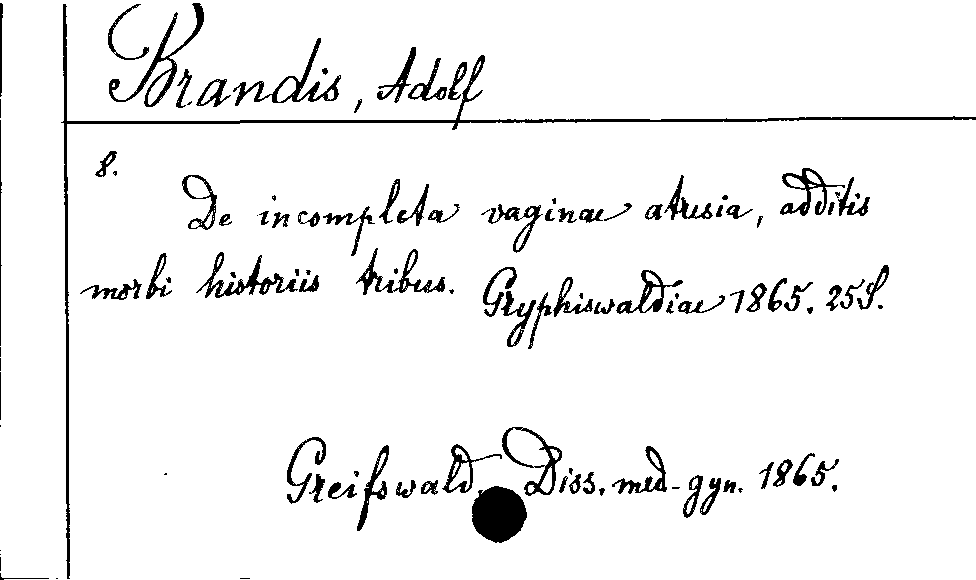 Brandis, Adolf
8.
De incompleta vaginae atresia, additis
morbi historiis tribus. Gryphiswaldiae 1865. 25 S.
Greifswald, Diss. med-gyn. 1865.